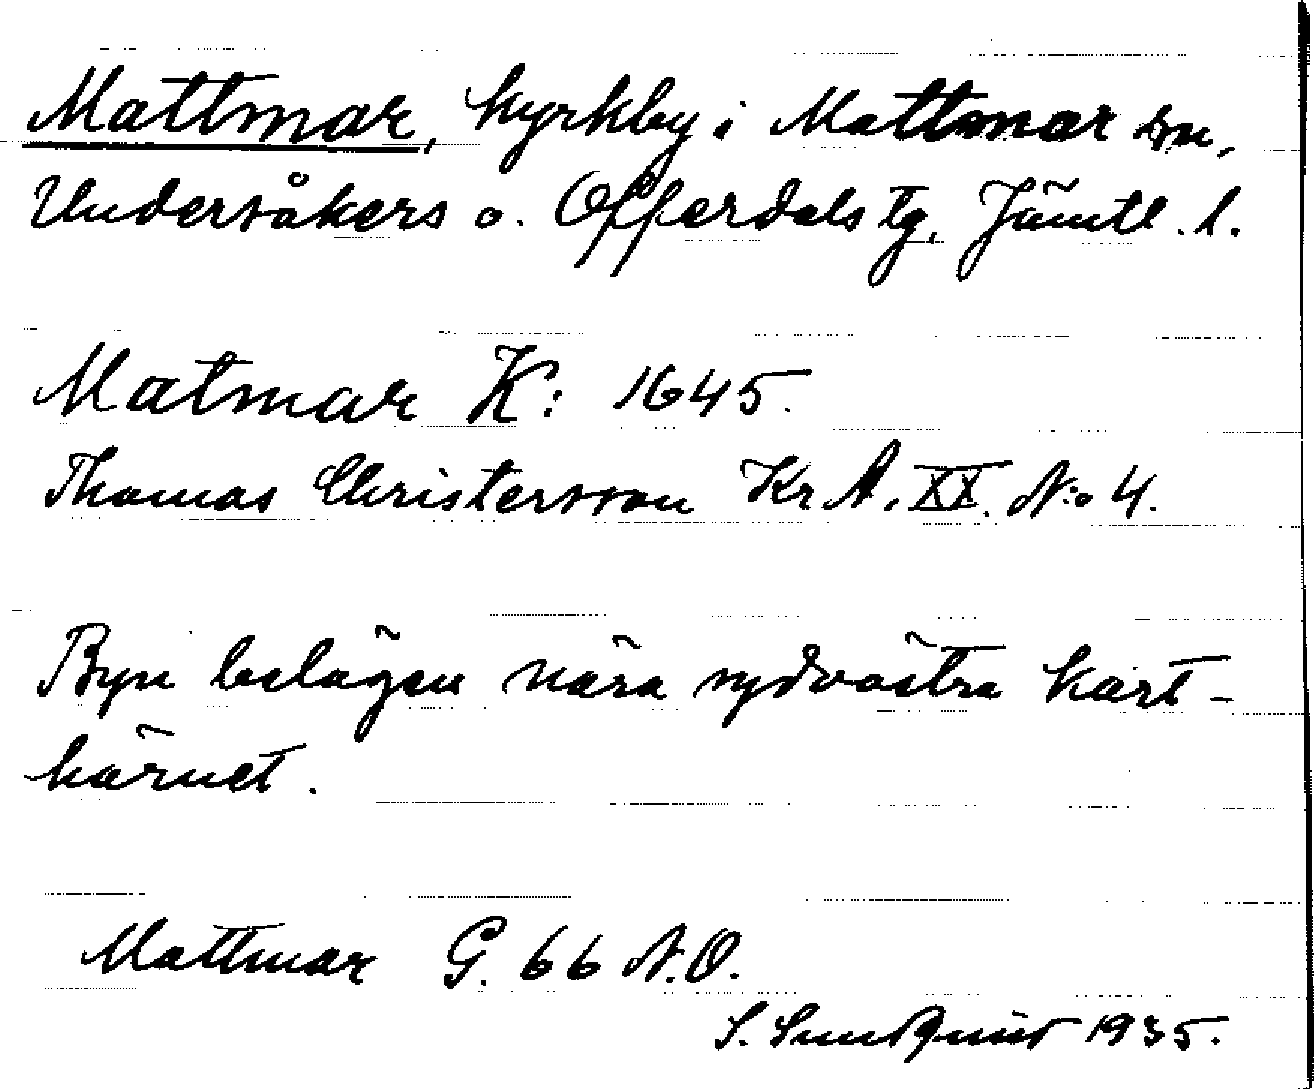 Mattmar, kyrkby i Mattmar sn,
Undersåkers o. Offerdals tg, Jämtl. l.
Matmar K: 1645.
Thomas Christersson Kr A. XX. N:o 4.
Byn belägen nära sydvästra kart-
hörnet.
Mattmar G. 66 N.O.
S. Sundquist 1935.